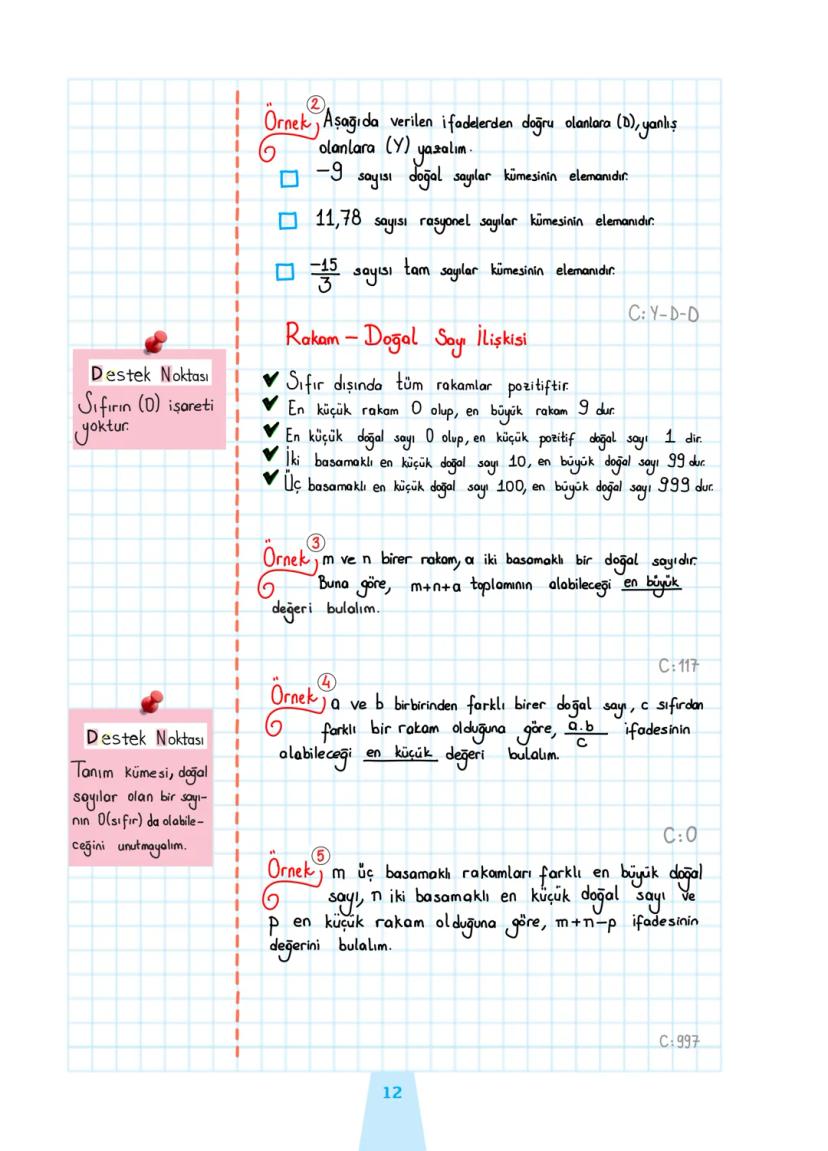 Örnek 2 Aşağıda verilen ifadelerden doğru olanlara (D), yanlış
olanlara (Y) yazalım.
-9 sayısı doğal sayılar kümesinin elemanıdır.
11,78 sayısı rasyonel sayılar kümesinin elemanıdır.
-15/3 sayısı tam sayılar kümesinin elemanıdır.
C: Y-D-D
Rakam - Doğal Sayı İlişkisi
✔ Sıfır dışında tüm rakamlar pozitiftir.
✔ En küçük rakam 0 olup, en büyük rakam 9 dur.
✔ En küçük doğal sayı 0 olup, en küçük pozitif doğal sayı 1 dir.
✔ İki basamaklı en küçük doğal sayı 10, en büyük doğal sayı 99 dur.
✔ Üç basamaklı en küçük doğal sayı 100, en büyük doğal sayı 999 dur.
Destek Noktası
Sıfırın (0) işareti
yoktur.
Örnek 3 m ve n birer rakam, a iki basamaklı bir doğal sayıdır.
Buna göre, m+n+a toplamının alabileceği en büyük
değeri bulalım.
C: 117
Örnek 4 a ve b birbirinden farklı birer doğal sayı, c sıfırdan
farklı bir rakam olduğuna göre, a.b/c ifadesinin
alabileceği en küçük değeri bulalım.
Destek Noktası
Tanım kümesi, doğal
sayılar olan bir sayı-
nın 0(sıfır) da olabile-
ceğini unutmayalım.
C: 0
Örnek 5 m üç basamaklı rakamları farklı en büyük doğal
sayı, n iki basamaklı en küçük doğal sayı ve
p en küçük rakam olduğuna göre, m+n-p ifadesinin
değerini bulalım.
C: 997
12